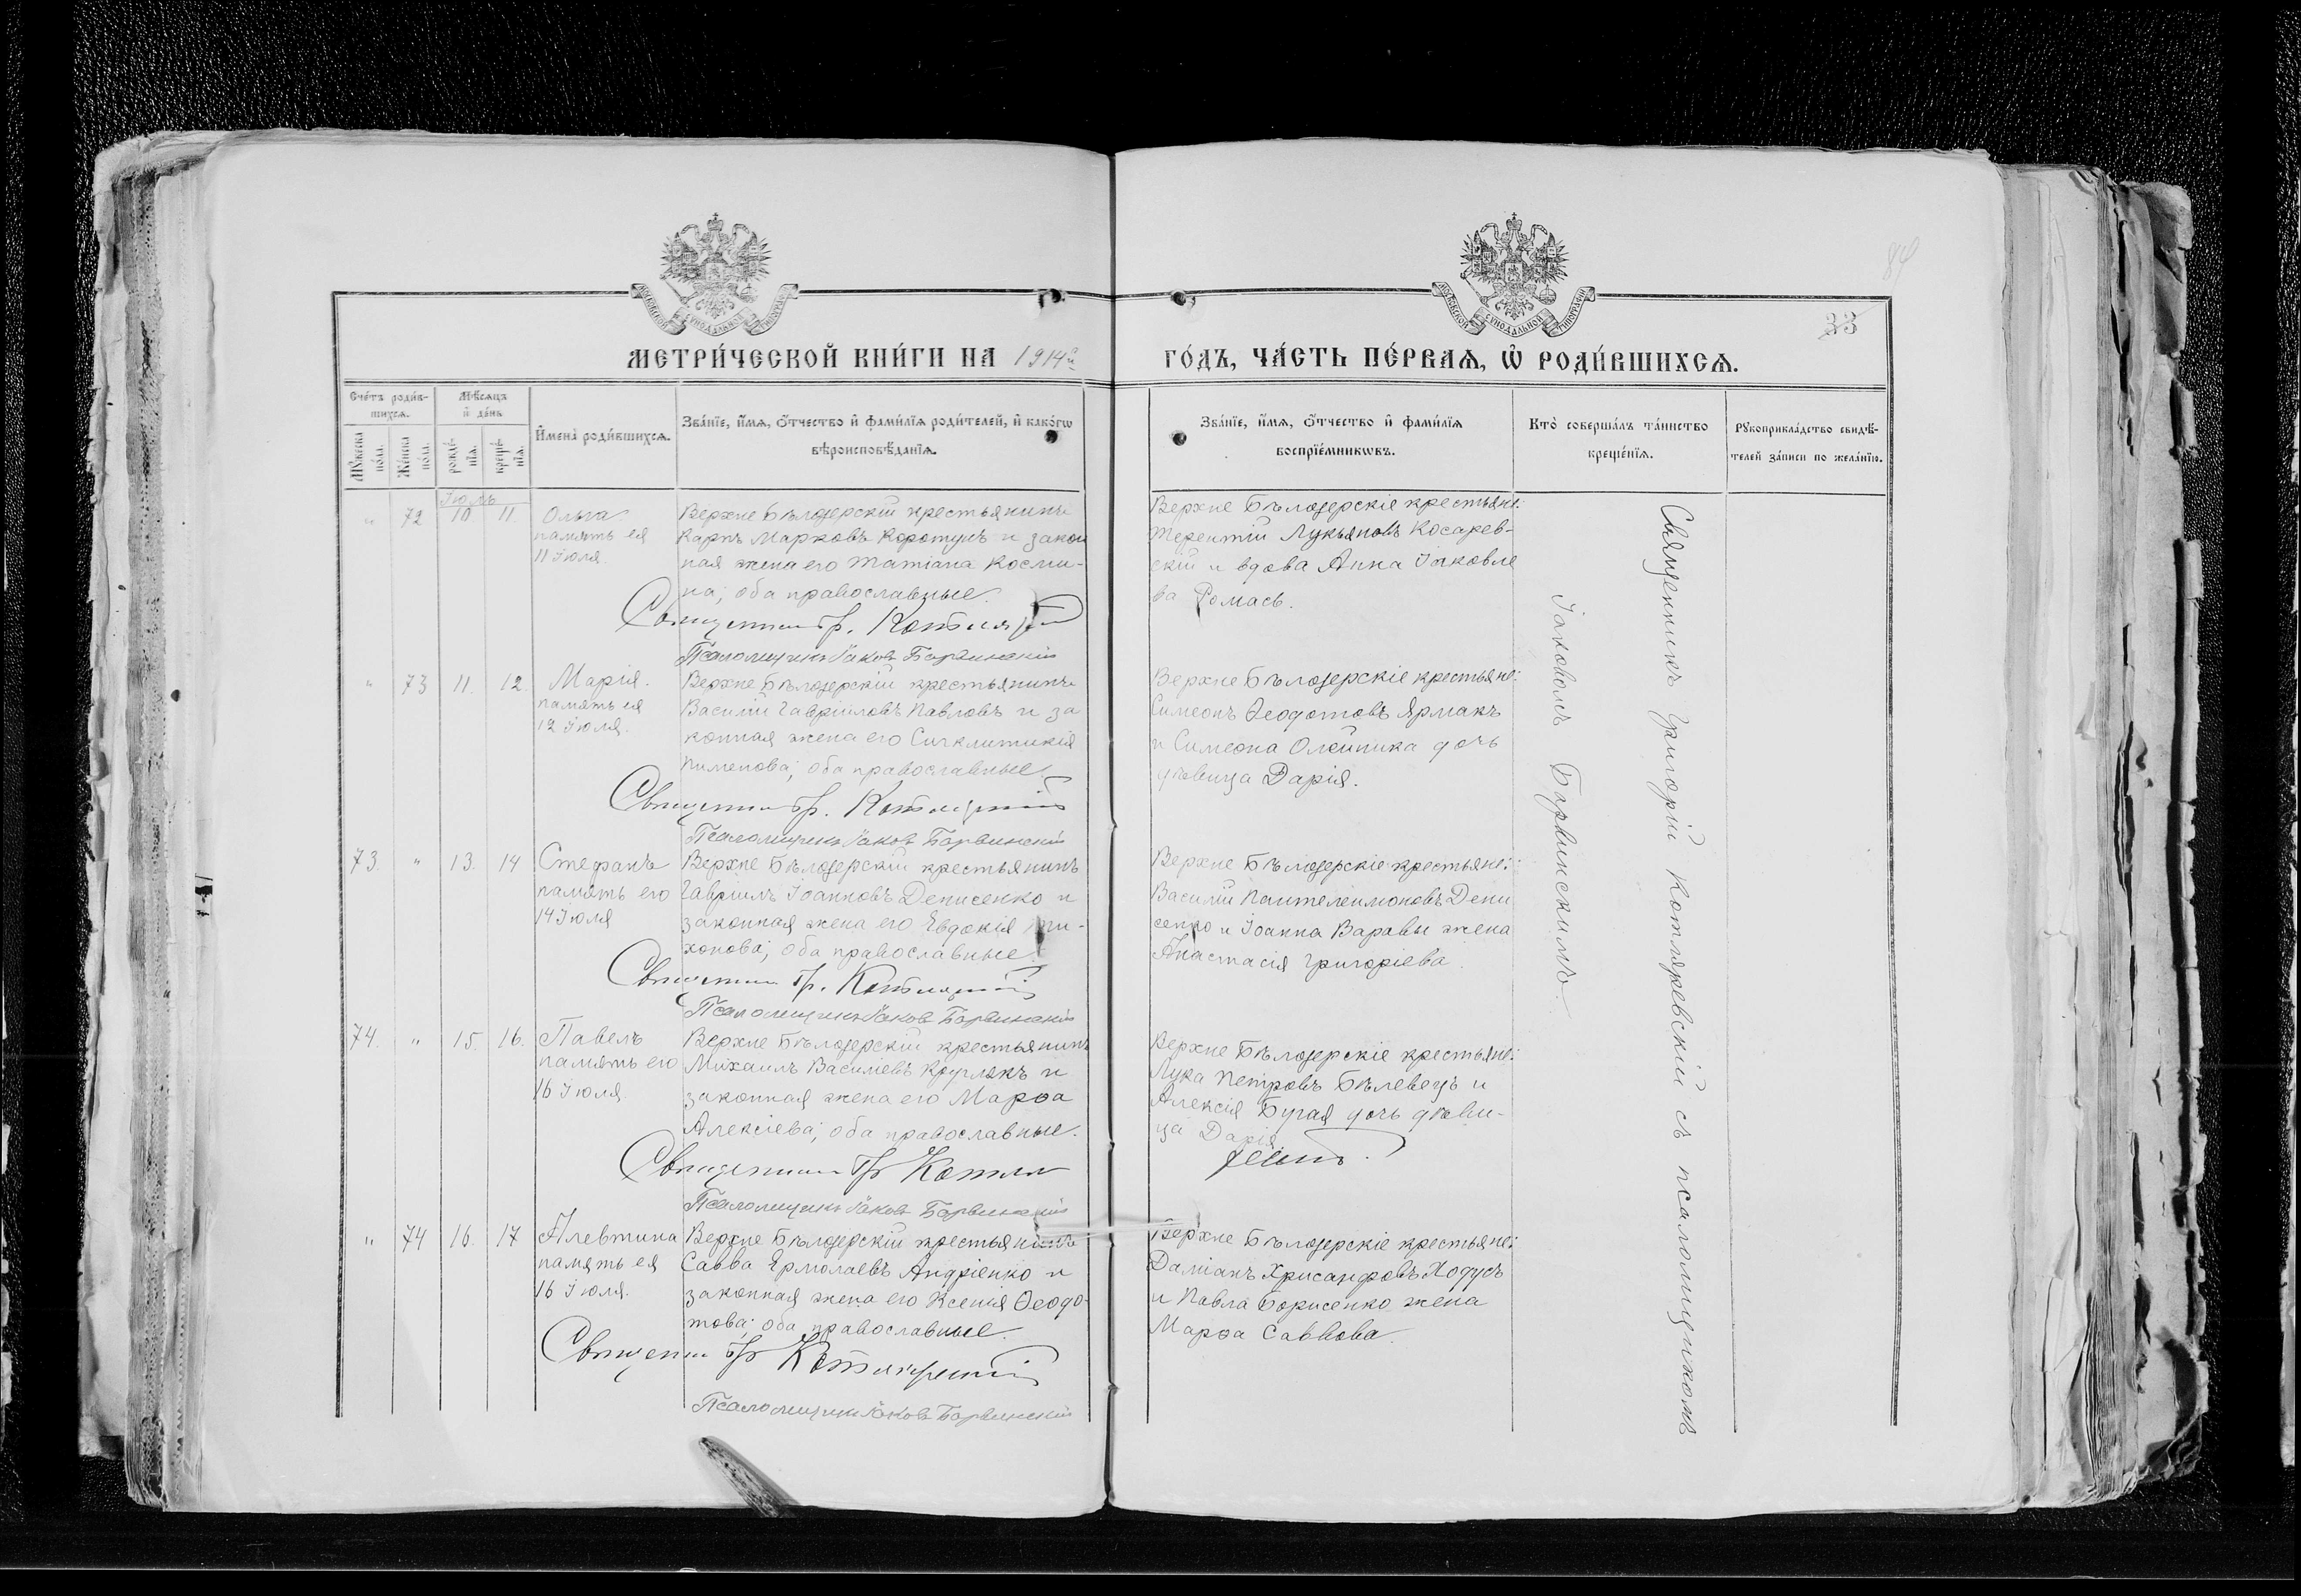 84
33
МОСКОВСКОЙ СУНОДАЛЬНОЙ ТИПОГРАФІИ
МОСКОВСКОЙ СУНОДАЛЬНОЙ ТИПОГРАФІИ
МЕТРИ́ЧЕСКОЙ КНИ́ГИ НА 1914й
ГО́ДЪ, ЧА́СТЬ ПЕ́РВАѦ, Ѡ҆ РОДИ́ВШИХСѦ.
Сче́тъ роди́в-
шихсѧ.
Мѣ́сѧцъ
и҆ де́нь
Мꙋ́жеска
по́ла.
Же́нска
по́ла.
рожде́-
нїѧ.
креще́-
нїѧ.
И҆мена̀ роди́вшихсѧ.
Зва́нїе, и҆́мѧ, о҆́тчество и҆ фами́лїѧ роди́телей, и҆ како́гѡ
вѣроисповѣ́данїѧ.
Зва́нїе, и҆́мѧ, о҆́тчество и҆ фами́лїѧ
воспрїе́мникѡвъ.
Кто̀ соверша́лъ та́инство
креще́нїѧ.
Рꙋкоприкла́дство свидѣ́-
телей за́писи по жела́нїю.
Іюль
" 72 10 11. Ольга
память ея
11 Іюля.
Верхне Бѣлозерскій крестьянинъ
Карпъ Марковъ Коротунъ и закон
ная жена его Татіана Косми-
на; оба православные.
Священник Гр. Котляревскій
Псаломщикъ Іаковъ Барвинскій
Верхне Бѣлозерскіе крестьяне:
Терентій Лукьяновъ Косарев-
скій и вдова Анна Іаковле
ва Ромась.
" 73 11. 12. Марія.
память ея
12 Іюля.
Верхне Бѣлозерскій крестьянинъ
Василій Гавріиловъ Павловъ и за
конная жена его Сигклитикія
Пименова; оба православные.
Священник Гр. Котляревскій
Псаломщикъ Іаковъ Барвинскій
Верхне Бѣлозерскіе крестьяне:
Симеонъ Ѳеодотовъ Ярмакъ
и Симеона Олейника дочь
дѣвица Дарія.
73. " 13. 14 Стефанъ
память его
14 Іюля
Верхне Бѣлозерскій крестьянинъ
Гавріилъ Іоанновъ Денисенко и
законная жена его Евдокія Ти-
хонова; оба православные.
Священник Гр. Котляревскій
Псаломщикъ Іаковъ Барвинскій
Верхне Бѣлозерскіе крестьяне:
Василій Пантелеимоновъ Дени
сенко и Іоанна Варавы жена
Анастасія Григоріева.
74. " 15. 16. Павелъ
память его
16 Іюля
Верхне Бѣлозерскій крестьянинъ
Михаилъ Василіевъ Круглякъ и
законная жена его Марѳа
Алексіева; оба православные.
Священник Гр Котля
Псаломщикъ Іаковъ Барвинскій
Верхне Бѣлозерскіе крестьяне:
Лука Петровъ Бѣлевецъ и
Алексія Бугая дочь дѣви-
ца Дарія.
ревскій.
" 74 16. 17 Алевтина
память ея
16 Іюля.
Верхне Бѣлозерскій крестьянинъ
Савва Ермолаевъ Андріенко и
законная жена его Ксенія Ѳеодо-
това; оба православные.
Священ Гр Котляревскій
Псаломщикъ Іаковъ Барвинскій
Верхне Бѣлозерскіе крестьяне:
Даміанъ Хрисанфовъ Ходусъ
и Павла Борисенко жена
Марѳа Саввова.
Священникъ Григорій Котляревскій съ псаломщикомъ
Іаковомъ Барвинскимъ.